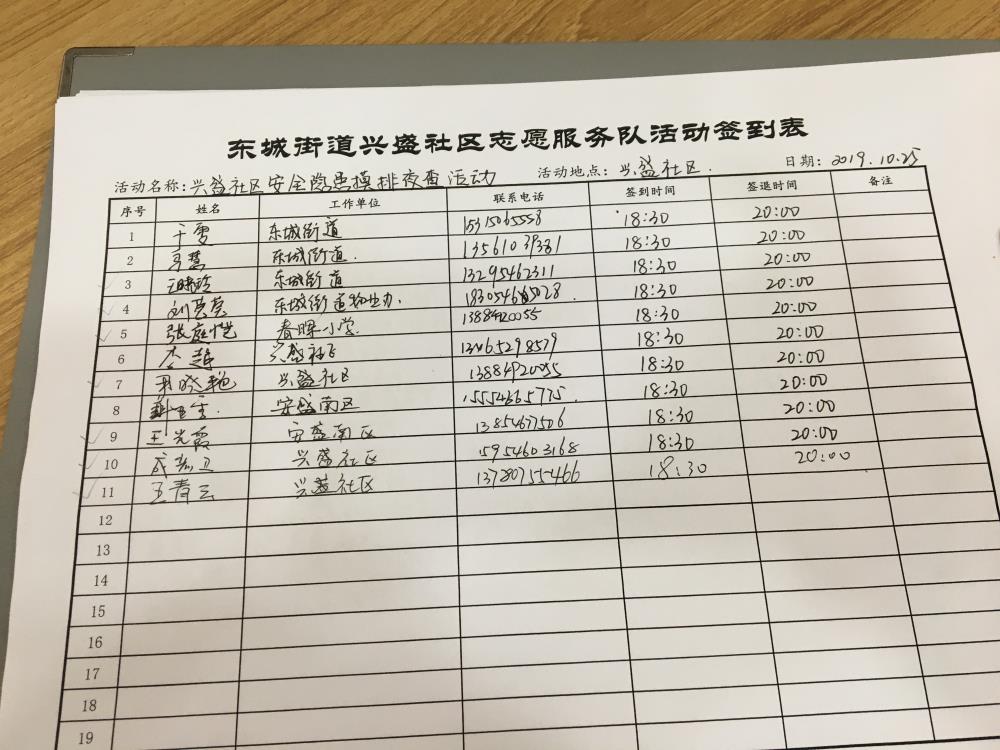 东城街道兴盛社区志愿服务队活动签到表
活动名称:兴盛社区安全隐患摸排夜查活动 活动地点:兴盛社区. 日期:2019.10.25
序号 姓名 工作单位 联系电话 签到时间 签退时间 备注
1 于雪 东城街道 15315065558 18:30 20:00
2 东城街道. 13561039381 18:30 20:00
3 东城街道 13295462311 18:30 20:00
4 刘 东城街道物业办. 18:30 20:00
5 张庭恺 春晖小学 13884920055 18:30 20:00
6 李超 兴盛社区 18:30 20:00
7 晓艳 兴盛社区 13884920055 18:30 20:00
8 安盛南区 15554665775 18:30 20:00
9 王光霞 安盛南区 13854677506 18:30 20:00
10 成 卫 兴盛社区 15954603168 18:30 20:00
11 王青云 兴盛社区 13780755466 18:30 20:00
12
13
14
15
16
17
18
19